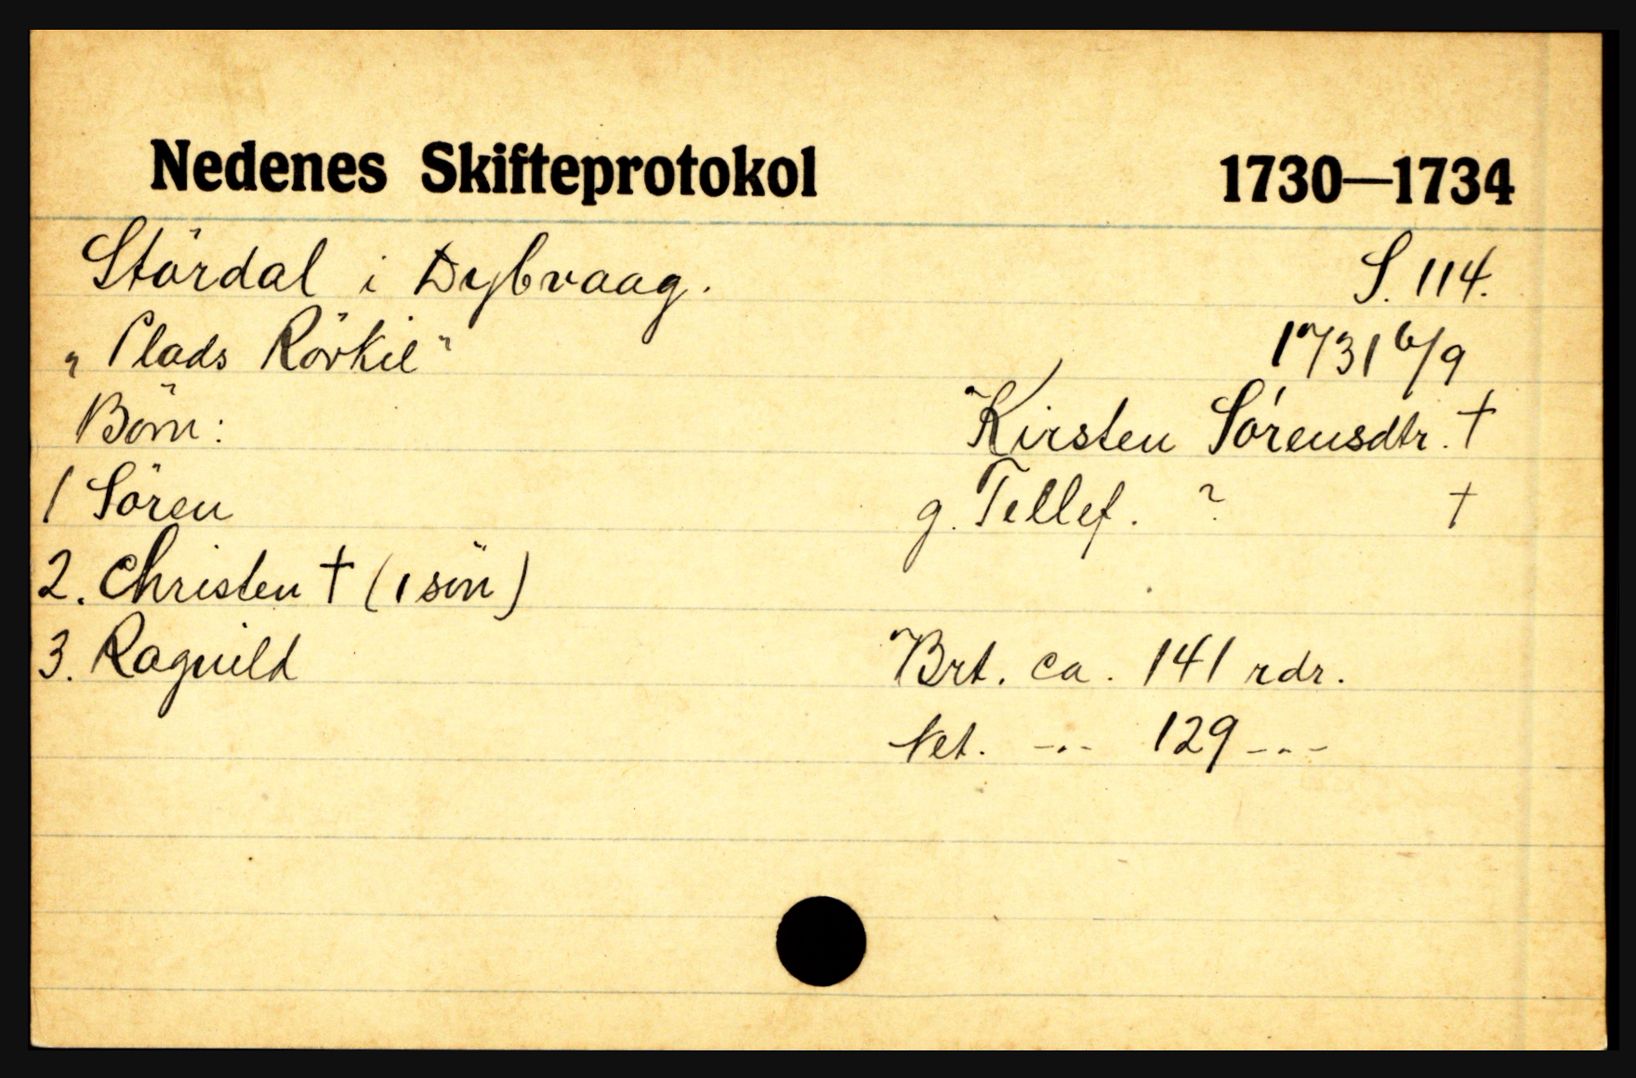 Nedenes Skifteprotokol 1730—1734
Stördal i Dybvaag. S. 114.
"Plads Rövkil" 1731 6/9
Börn: Kirsten Sörensdtr. †
1 Sören g. Tellef. ? †
2. Christen † (1 sön)
3. Ragnild Brt. ca. 141 rdr.
Net. -"- 129 -"-